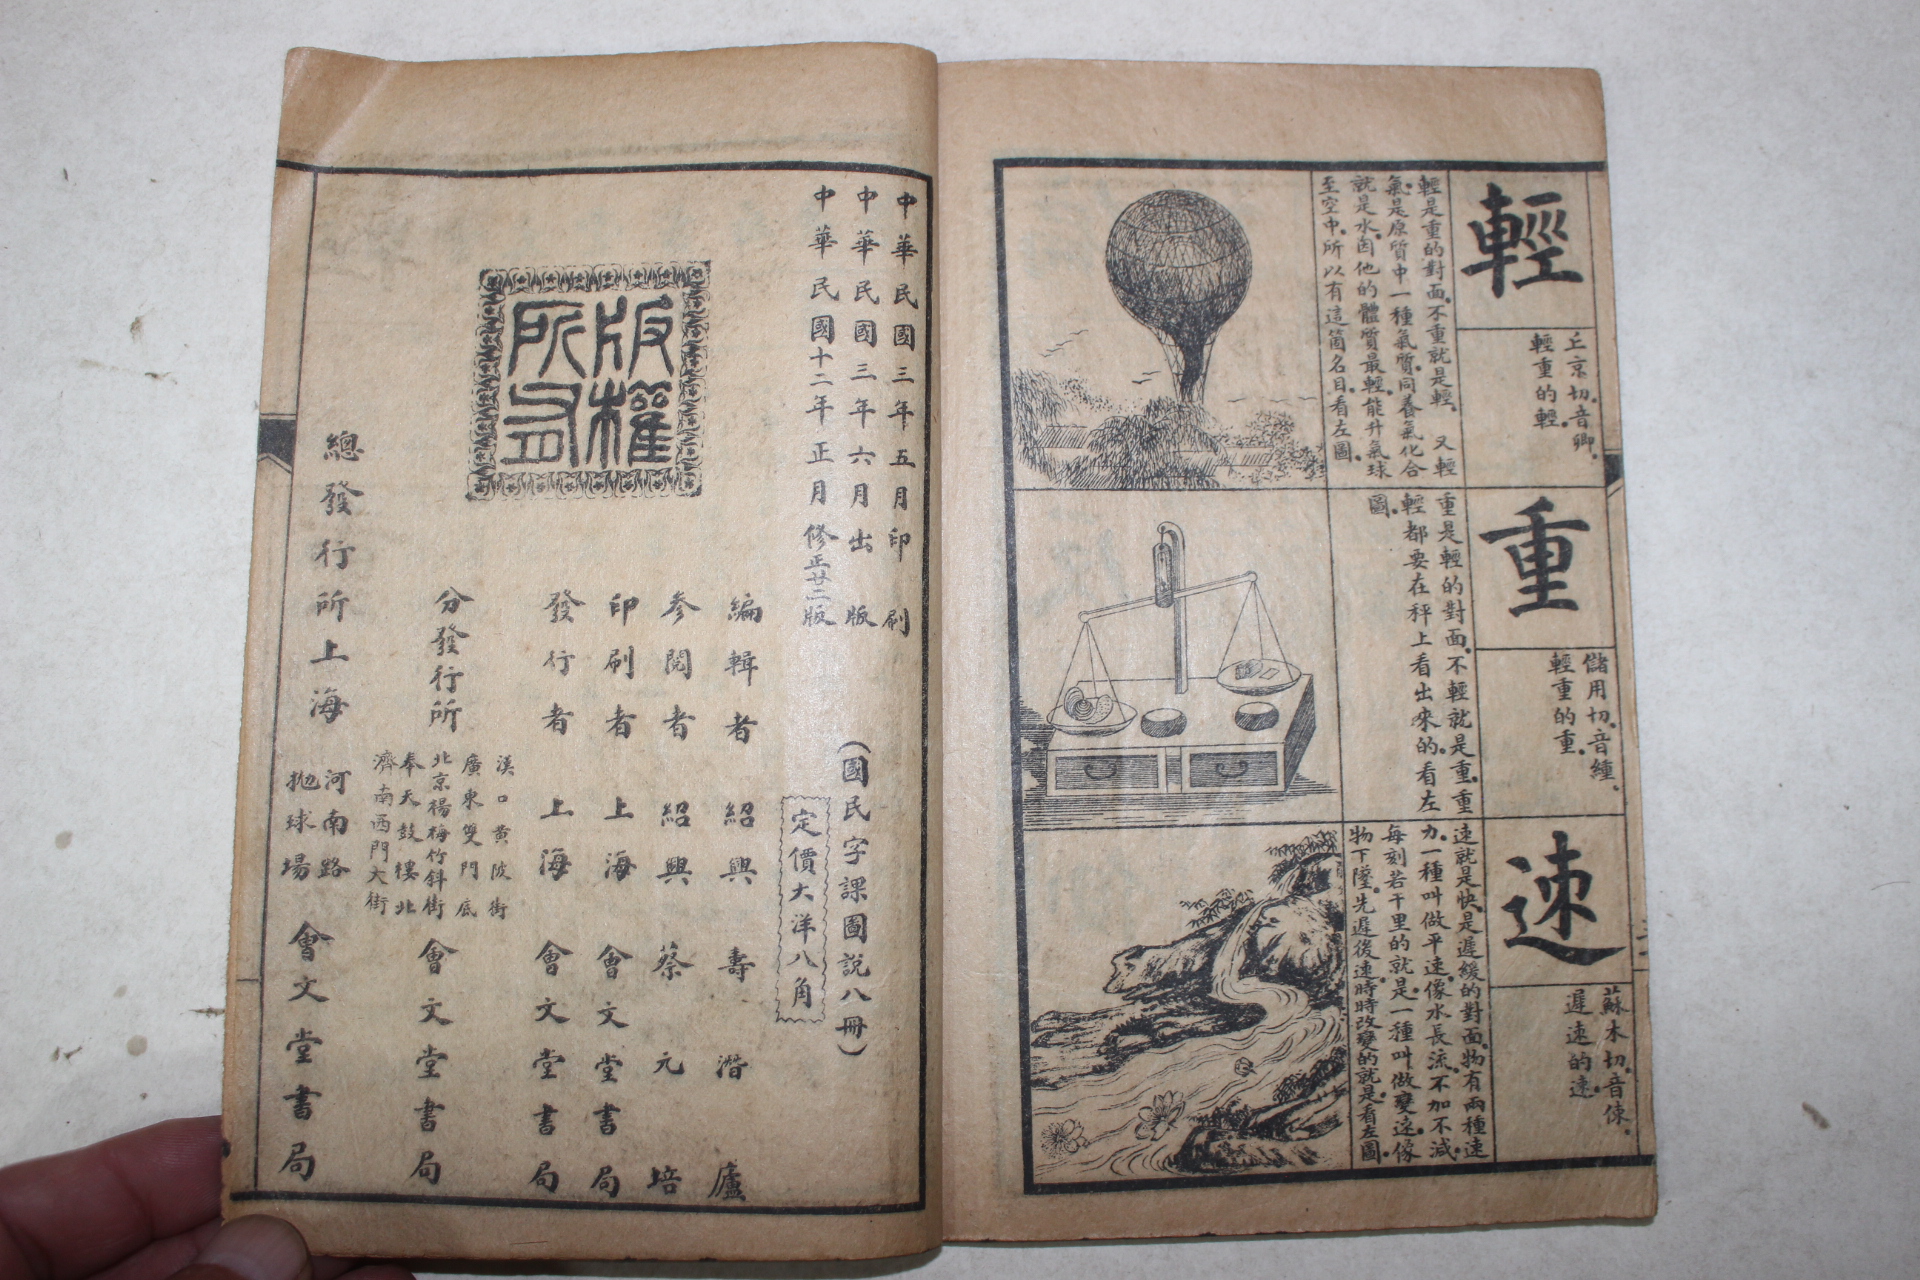 輕
丘京切。音卿。
輕重的輕。
輕是重的對面。不重就是輕。 又輕
氣。是原質中一種氣質。同養氣化合
就是水。因他的體質最輕。能升氣球
至空中。所以有這箇名目。看左圖。
重
儲用切。音緟。
輕重的重。
重是輕的對面。不輕就是重。重
輕都要在秤上看出來的。看左
圖。
速
蘇木切。音倲。
遲速的速。
速就是快。是遲緩的對面。物有兩種速
力。一種叫做平速。像水長流。不加不減。
每刻若干里的就是。一種叫做變速。像
物下墜。先遲後速。時時改變的就是。看左圖。
中華民國三年五月印刷
中華民國三年六月出版
中華民國十二年正月修正廿二版
(國民字課圖說八冊)
定價大洋八角
版權所有
編輯者 紹興 壽潛廬
參閱者 紹興 蔡元培
印刷者 上海 會文堂書局
發行者 上海 會文堂書局
分發行所
漢口黄陂街
廣東雙門底
北京楊梅竹斜街
奉天鼓樓北
濟南西門大街
會文堂書局
總發行所上海
河南路
拋球場
會文堂書局